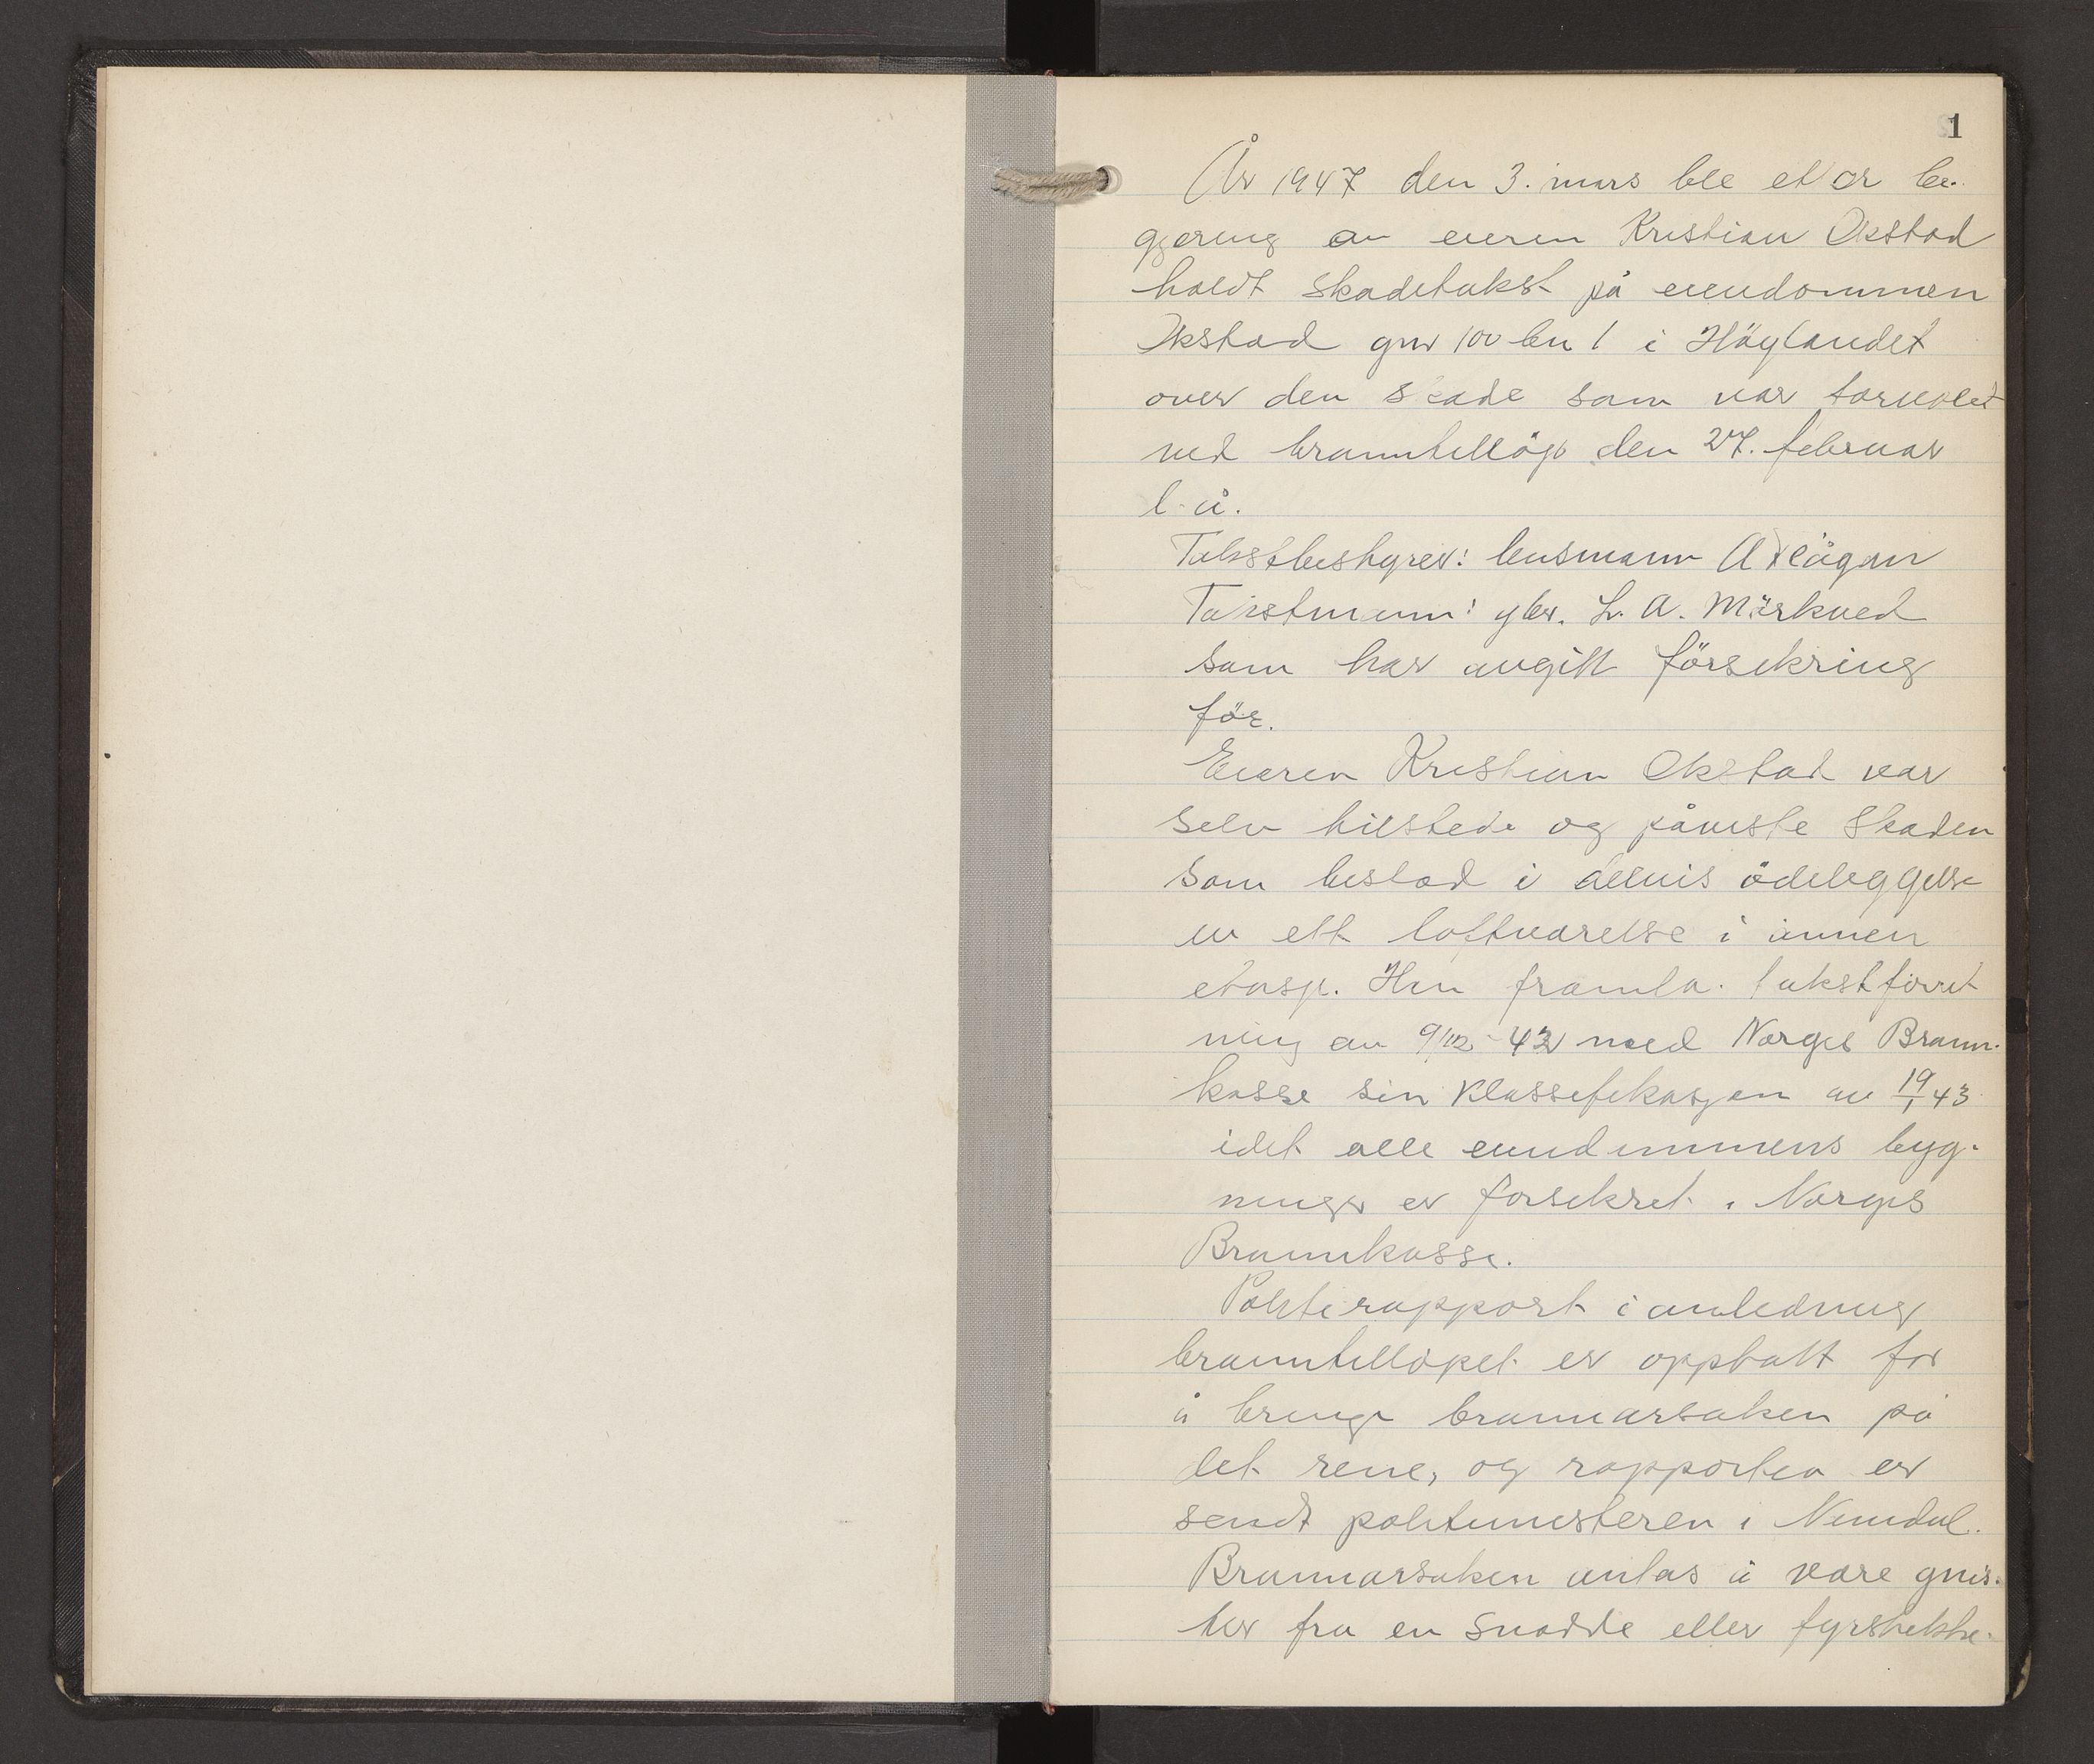 1
År 1947 den 3. mars ble etter be-
gjæring av eieren Kristian Okstad
holdt skadetakst på eiendommen
Okstad gnr 100 bn 1 i Höylandet
over den skade som var forvoldt
ved branntillöp den 27. februar
l. å.
Takstbestyrer: lensmann A
Takstmann: gbr. L. A. Mörkved
som har avgitt försikring
för.
Eieren Kristian Okstad var
selv tilstede og påviste skaden
som bestod i delvis ödeleggelse
av ett loftværelse i annen
etasje. Han framla takstforret
ning av 9/12-42 med Norges Brann-
kasse sin klassifikasjon av 19/1 43
idet alle eiendommens byg-
ninger er forsikret i Norges
Brannkasse.
Politirapport i anledning
branntillöpet er opptatt for
å bringe brannårsaken på
det rene, og rapporten er
sendt politimesteren i Namdal.
Brannårsaken antas å være gnis-
ter fra en snadde eller fyrstikke-